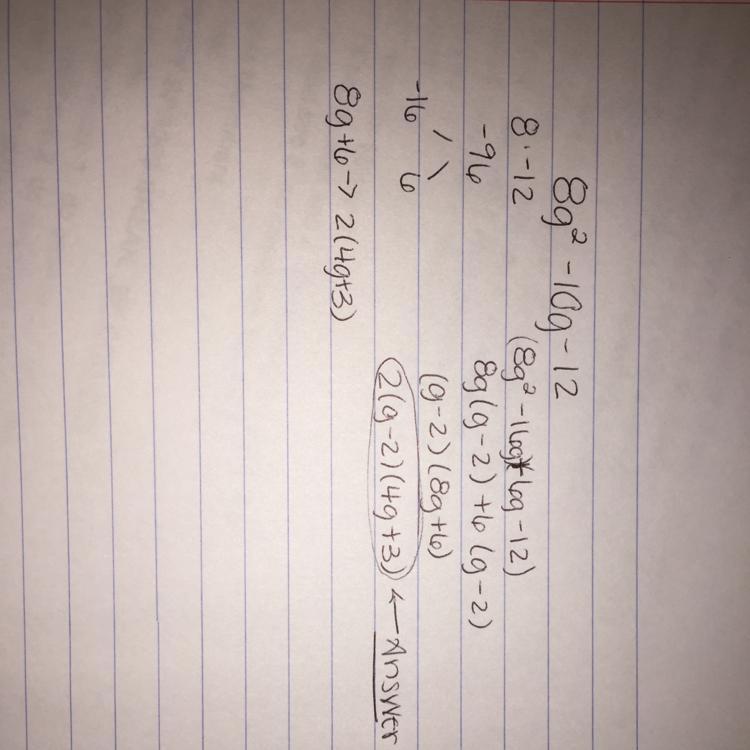 8g² - 10g - 12
8·-12
-96
-16 6
8g+6 → 2(4g+3)
(8g² - 16g)+(6g - 12)
8g(g-2)+6(g-2)
(g-2)(8g+6)
2(g-2)(4g+3) ← Answer